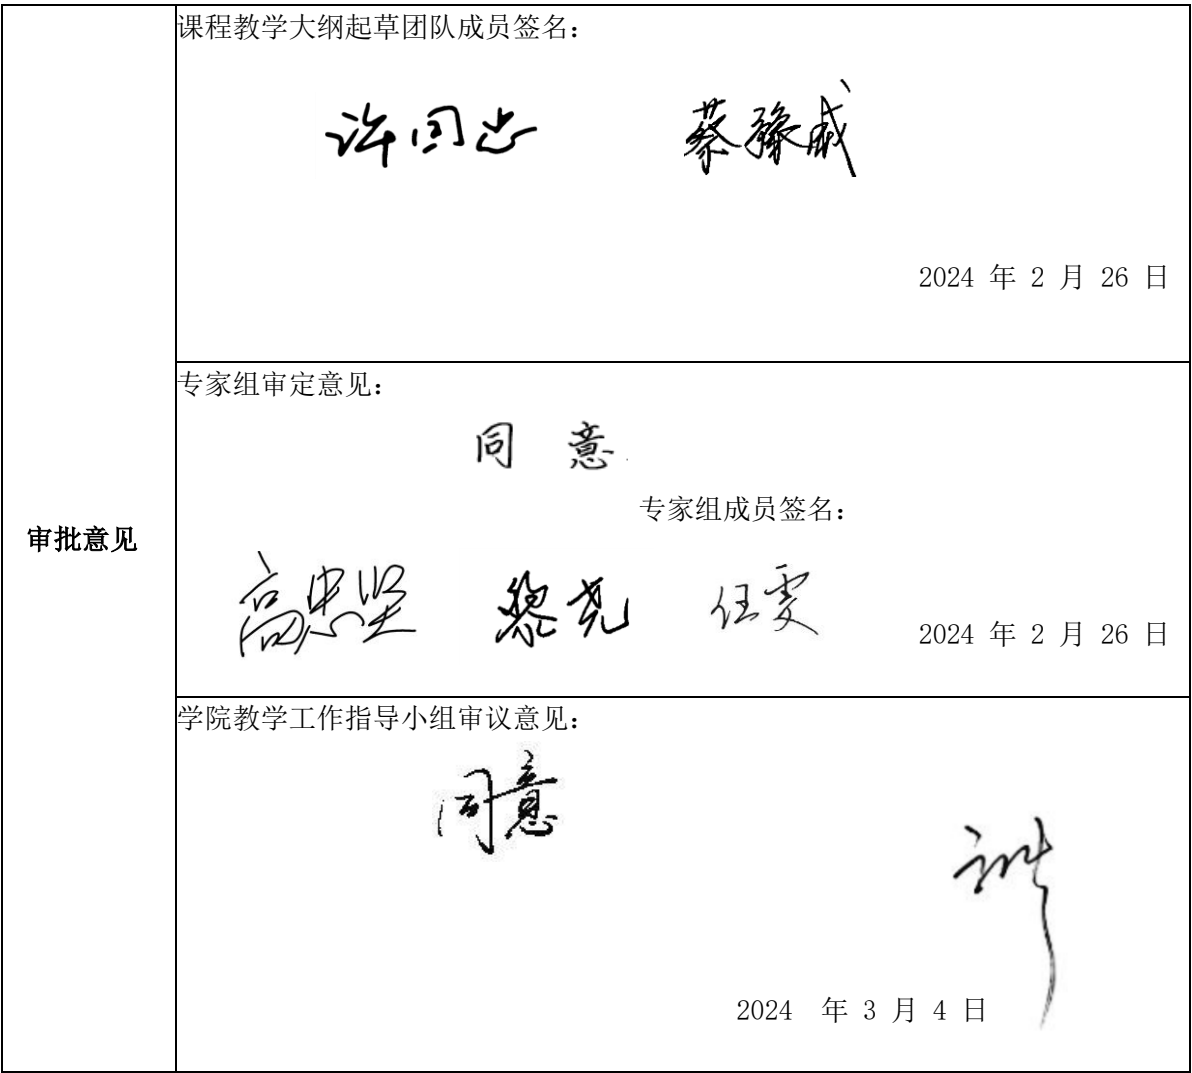 课程教学大纲起草团队成员签名：
许同 蔡豫咸
2024 年 2 月 26 日
专家组审定意见：
同 意
专家组成员签名：
审批意见
高忠坚 黎尧 任雯
2024 年 2 月 26 日
学院教学工作指导小组审议意见：
同意
2024 年 3 月 4 日